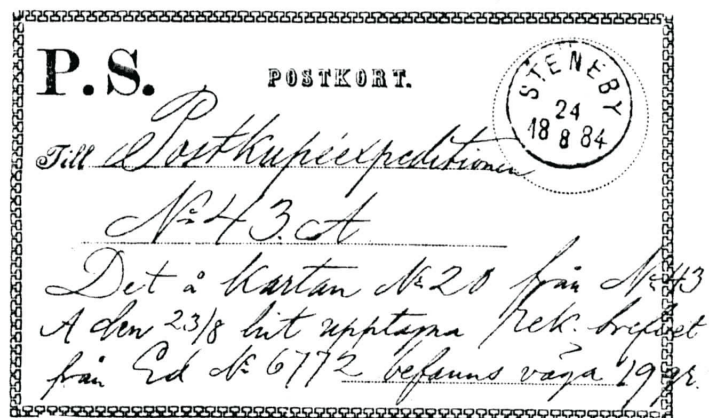 P.S.
POSTKORT.
STENEBY
24
18 8 84
Till Postkupéexpeditionen
No 43. A
Det å kartan No 20 från No 43
A den 23/8 hit upptagna rek. brefvet
från Ed No 6772 befanns väga 19 gr.